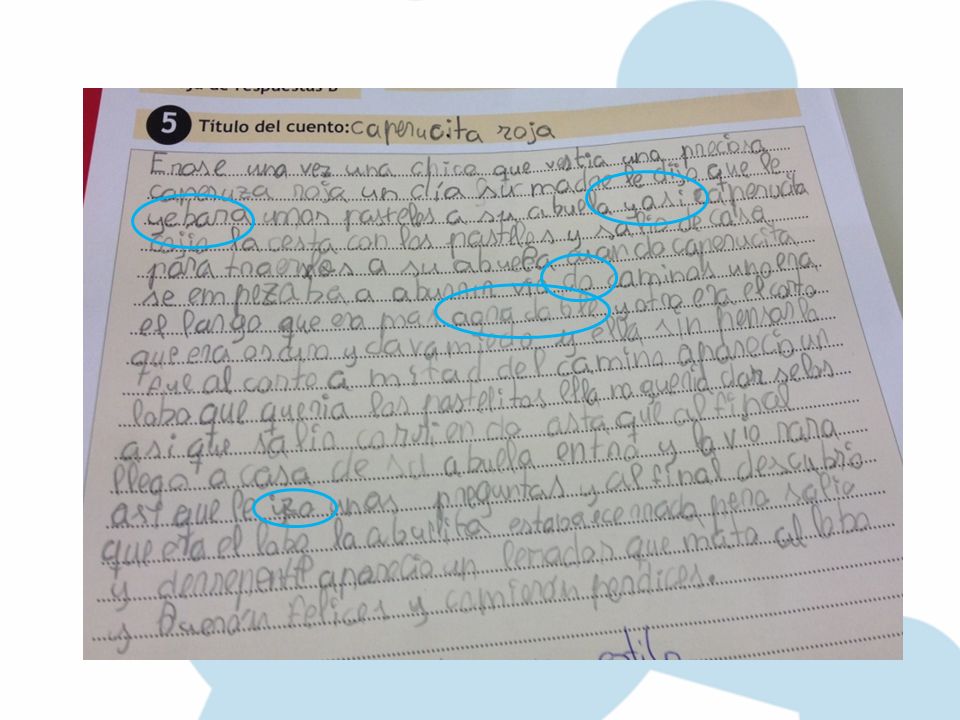 ja de respuestas B
5 Título del cuento: caperucita roja
Erase una vez una chica que vestia una preciosa
caperuza roja un día su madre le dijo que le
yebara unos pasteles a su abuela y asi caperucita
cojio la cesta con los pasteles y salio de casa
para traerlos a su abuela cuando caperucita
se empezaba a aburrir vio do caminos uno era
el largo que era mas agradable y otro era el corto
que era oscuro y dava miedo y ella sin pensarlo
fue al corto a mitad del camino aparecio un
lobo que queria los pastelitos ella no queria dar selos
asi que salio corriendo asta que al final
llego a casa de su abuela entro y la vio rara
asi que le izo unas preguntas y al final descubrio
que era el lobo la abuelita estaba ecerrada pero salio
y derrepente aparecio un leñador que mata al lobo
y fueron felices y comieron perdices.
estilo